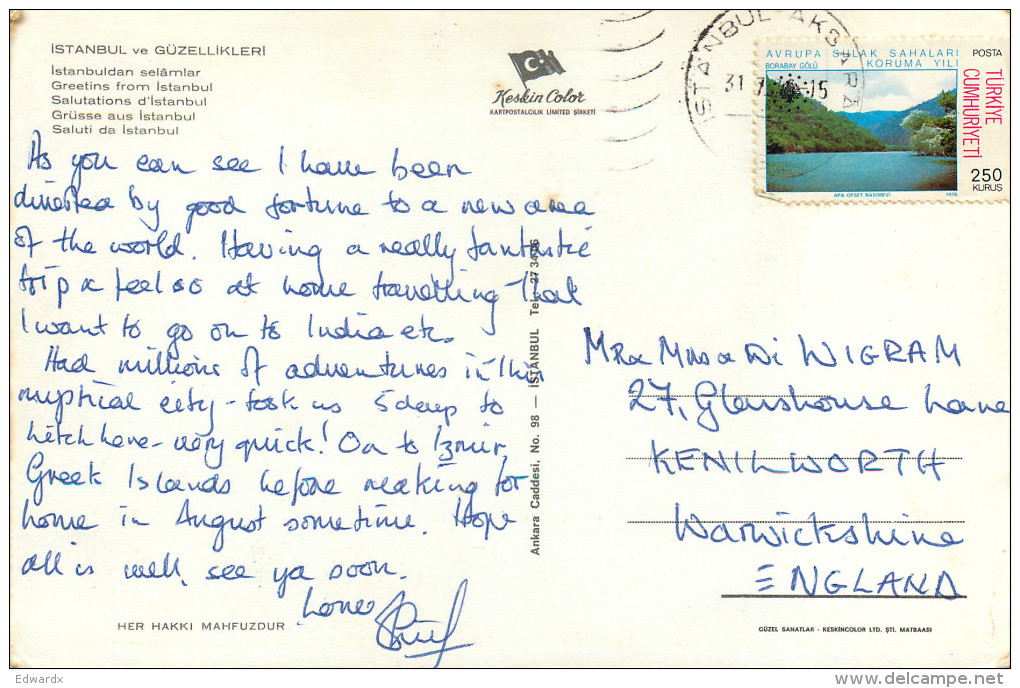 İSTANBUL ve GÜZELLİKLERİ
İstanbuldan selâmlar
Greetins from İstanbul
Salutations d'İstanbul
Grüsse aus İstanbul
Saluti da İstanbul
Keskin Color
KARTPOSTALCILIK LIMITED ŞİRKETİ
İSTANBUL-AKSARA
31
15
AVRUPA SULAK SAHALARI
KORUMA YILI
BORABAY GÖLÜ
POSTA
TÜRKİYE
CUMHURİYETİ
250
KURUS
APA OFSET BASIMEVİ
1976
As you can see I have been
diverted by good fortune to a new area
of the world. Having a really fantastic
trip & feel so at home travelling that
I want to go on to India etc.
Had millions of adventures in this
mystical city - took us 5 days to
hitch here - very quick! On to Izmir,
Greek Islands before making for
home in August sometime. Hope
all is well, see ya soon.
Love
Ankara Caddesi, No. 98 — İSTANBUL Tel: 27 34 06
Mr & Mrs & Di WIGRAM
27, Glasshouse Lane
KENILWORTH
Warwickshire
ENGLAND
HER HAKKI MAHFUZDUR
GÜZEL SANATLAR - KESKİNCOLOR LTD. ŞTİ. MATBAASI
Edwardx
delcampe.net